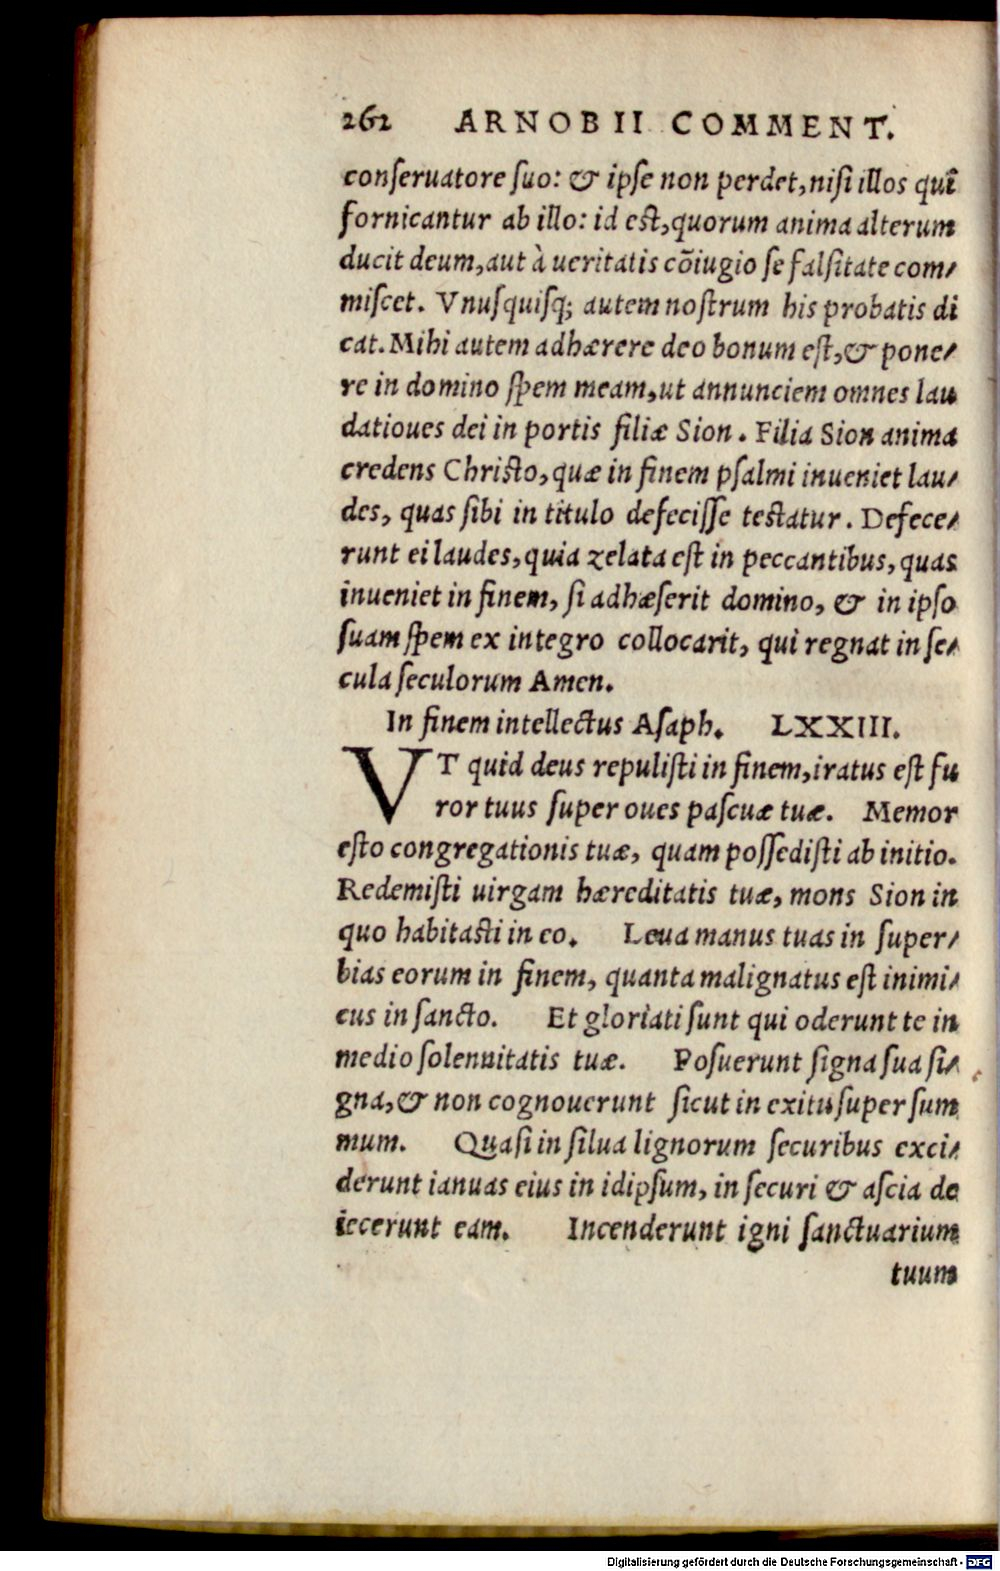 262 ARNOBII COMMENT.
conſeruatore ſuo: & ipſe non perdet, niſi illos qui
fornicantur ab illo: id eſt, quorum anima alterum
ducit deum, aut à ueritatis cõiugio ſe falſitate com-
miſcet. Vnuſquiſq; autem noſtrum his probatis di
cat. Mihi autem adhærere deo bonum eſt, & pone-
re in domino ſpem meam, ut annunciem omnes lau
datioues dei in portis filiæ Sion. Filia Sion anima
credens Chriſto, quæ in finem pſalmi inueniet lau-
des, quas ſibi in titulo defeciſſe teſtatur. Defece-
runt ei laudes, quia zelata eſt in peccantibus, quas
inueniet in finem, ſi adhæſerit domino, & in ipſo
ſuam ſpem ex integro collocarit, qui regnat in ſe-
cula ſeculorum Amen.
In finem intellectus Aſaph. LXXIII.
VT quid deus repuliſti in finem, iratus eſt fu
ror tuus ſuper oues paſcuæ tuæ. Memor
eſto congregationis tuæ, quam poſſediſti ab initio.
Redemiſti uirgam hæreditatis tuæ, mons Sion in
quo habitaſti in eo. Leua manus tuas in ſuper-
bias eorum in finem, quanta malignatus eſt inimi-
cus in ſancto. Et gloriati ſunt qui oderunt te in
medio ſolennitatis tuæ. Poſuerunt ſigna ſua ſi-
gna, & non cognouerunt ſicut in exitu ſuper ſum
mum. Quaſi in ſilua lignorum ſecuribus exci-
derunt ianuas eius in idipſum, in ſecuri & aſcia de
iecerunt eam. Incenderunt igni ſanctuarium
tuum
Digitalisierung gefördert durch die Deutsche Forschungsgemeinschaft - DFG